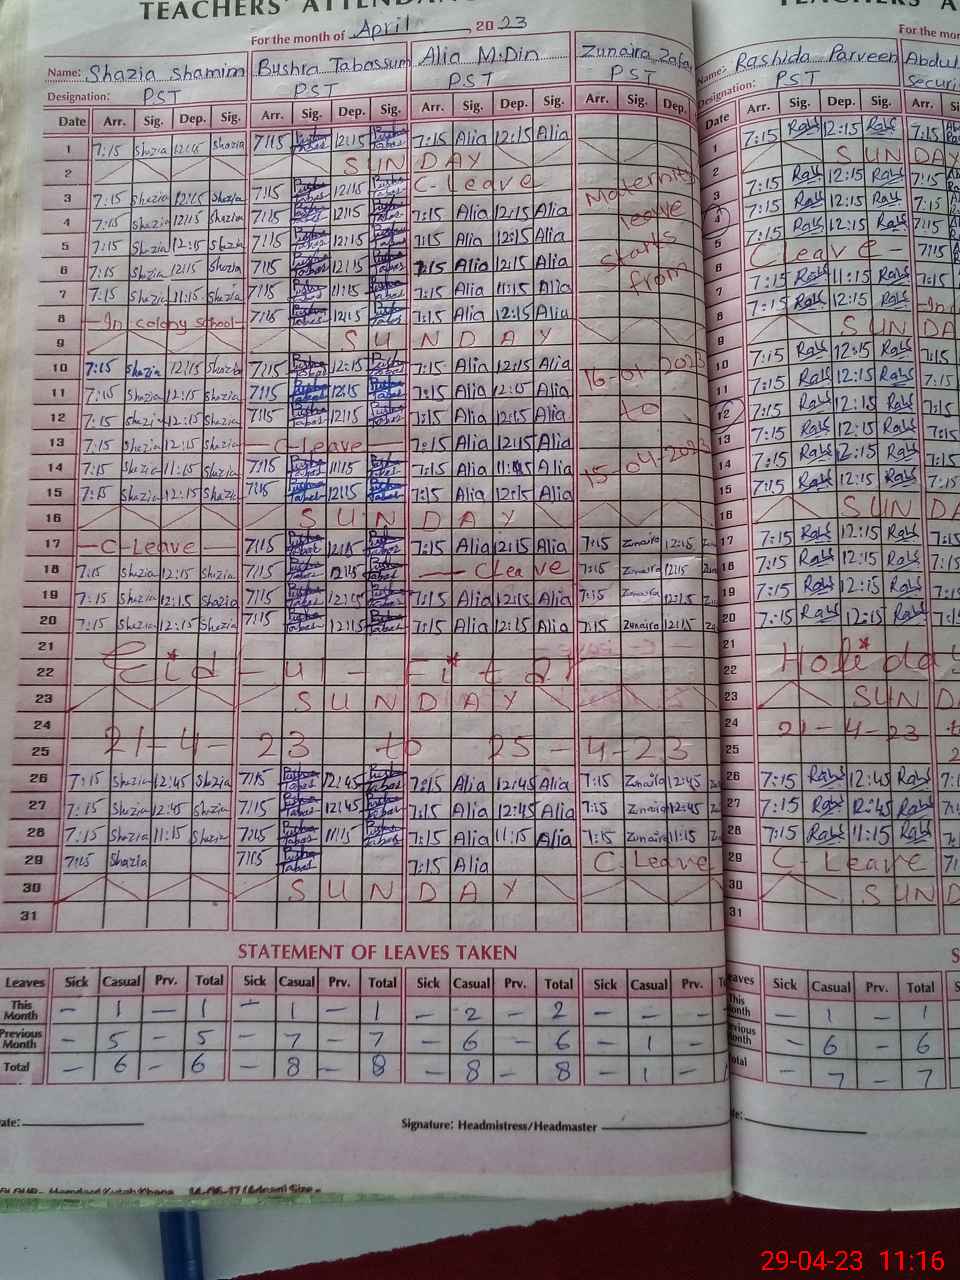 TEACHERS' ATTENDANC
For the month of April, 20 23
Name: Shazia Shamim Bushra Tabassum Alia M.Din Zunaira Zafa
Designation: PST PST PST PST
Date Arr. Sig. Dep. Sig. Arr. Sig. Dep. Sig. Arr. Sig. Dep. Sig. Arr. Sig. Dep.
1 7:15 Shazia 12:15 Shazia 7:15 Bushra Tabas 12:15 Bushra Tabas 7:15 Alia 12:15 Alia
2 SUNDAY
3 7:15 Shazia 12:15 Shazia 7:15 Bushra Tabas 12:15 Bushra Tabas C-Leave Maternity
4 7:15 Shazia 12:15 Shazia 7:15 Bushra Tabas 12:15 Bushra Tabas 7:15 Alia 12:15 Alia leave
5 7:15 Shazia 12:15 Shazia 7:15 Bushra Tabas 12:15 Bushra Tabas 7:15 Alia 12:15 Alia starts
6 7:15 Shazia 12:15 Shazia 7:15 Bushra Tabas 12:15 Bushra Tabas 7:15 Alia 12:15 Alia from
7 7:15 Shazia 11:15 Shazia 7:15 Bushra Tabas 11:15 Bushra Tabas 7:15 Alia 11:15 Alia
8 -In colony school- 7:15 Bushra Tabas 12:15 Bushra Tabas 7:15 Alia 12:15 Alia
9 SUNDAY
10 7:15 Shazia 12:15 Shazia 7:15 Bushra Tabas 12:15 Bushra Tabas 7:15 Alia 12:15 Alia 16-01-2023
11 7:15 Shazia 12:15 Shazia 7:15 Bushra Tabas 12:15 Bushra Tabas 7:15 Alia 12:15 Alia
12 7:15 Shazia 12:15 Shazia 7:15 Bushra Tabas 12:15 Bushra Tabas 7:15 Alia 12:15 Alia to
13 7:15 Shazia 12:15 Shazia -C-Leave- 7:15 Alia 12:15 Alia
14 7:15 Shazia 11:15 Shazia 7:15 Bushra Tabas 11:15 Bushra Tabas 7:15 Alia 11:15 Alia 15-04-2023
15 7:15 Shazia 12:15 Shazia 7:15 Bushra Tabas 12:15 Bushra Tabas 7:15 Alia 12:15 Alia
16 SUNDAY
17 -C-Leave- 7:15 Bushra Tabas 12:15 Bushra Tabas 7:15 Alia 12:15 Alia 7:15 Zunaira 12:15
18 7:15 Shazia 12:15 Shazia 7:15 Bushra Tabas 12:15 Bushra Tabas - CLeave 7:15 Zunaira 12:15
19 7:15 Shazia 12:15 Shazia 7:15 Bushra Tabas 12:15 Bushra Tabas 7:15 Alia 12:15 Alia 7:15 Zunaira 12:15
20 7:15 Shazia 12:15 Shazia 7:15 Bushra Tabas 12:15 Bushra Tabas 7:15 Alia 12:15 Alia 7:15 Zunaira 12:15
21
22 Eid - ul - Fitar
23 SUNDAY
24
25 21-4-23 to 25-4-23
26 7:15 Shazia 12:45 Shazia 7:15 Bushra Tabas 12:45 Bushra Tabas 7:15 Alia 12:45 Alia 7:15 Zunaira 12:45
27 7:15 Shazia 12:45 Shazia 7:15 Bushra Tabas 12:45 Bushra Tabas 7:15 Alia 12:45 Alia 7:15 Zunaira 12:45
28 7:15 Shazia 11:15 Shazia 7:15 Bushra Tabas 11:15 Bushra Tabas 7:15 Alia 11:15 Alia 7:15 Zunaira 11:15
29 7:15 Shazia 7:15 Bushra Tabas 7:15 Alia C-Leave
30 SUNDAY
31
STATEMENT OF LEAVES TAKEN
Leaves Sick Casual Prv. Total Sick Casual Prv. Total Sick Casual Prv. Total Sick Casual Prv.
This Month - 1 - 1 - 1 - 1 - 2 - 2 - - -
Previous Month - 5 - 5 - 7 - 7 - 6 - 6 - 1 -
Total - 6 - 6 - 8 - 8 - 8 - 8 - 1 -
ate: Signature: Headmistress/Headmaster
TEACHERS' A
For the mon
Name: Rashida Parveen Abdul
Designation: PST securi
Date Arr. Sig. Dep. Sig. Arr.
1 7:15 Rah 12:15 Rah 7:15
2 SUNDAY
3 7:15 Rah 12:15 Rah 7:15
4 7:15 Rah 12:15 Rah 7:15
5 7:15 Rah 12:15 Rah 7:15
6 CLeave - 7:15
7 7:15 Rah 11:15 Rah 7:15
8 7:15 Rah 12:15 Rah -In
9 SUNDA
10 7:15 Rah 12:15 Rah 7:15
11 7:15 Rah 12:15 Rah 7:15
12 7:15 Rah 12:15 Rah
13 7:15 Rah 12:15 Rah 7:15
14 7:15 Rah 12:15 Rah 7:15
15 7:15 Rah 12:15 Rah 7:15
16 SUNDA
17 7:15 Rah 12:15 Rah
18 7:15 Rah 12:15 Rah
19 7:15 Rah 12:15 Rah
20 7:15 Rah 12:15 Rah
21
22 Holiday
23 SUND
24 21-4-23 t
25
26 7:15 Rah 12:45 Rah
27 7:15 Rah 12:45 Rah
28 7:15 Rah 11:15 Rah
29 C-Leave
30 SUN
31
eaves Sick Casual Prv. Total
This Month - 1 - 1
vious Month - 6 - 6
otal - 7 - 7
29-04-23 11:16